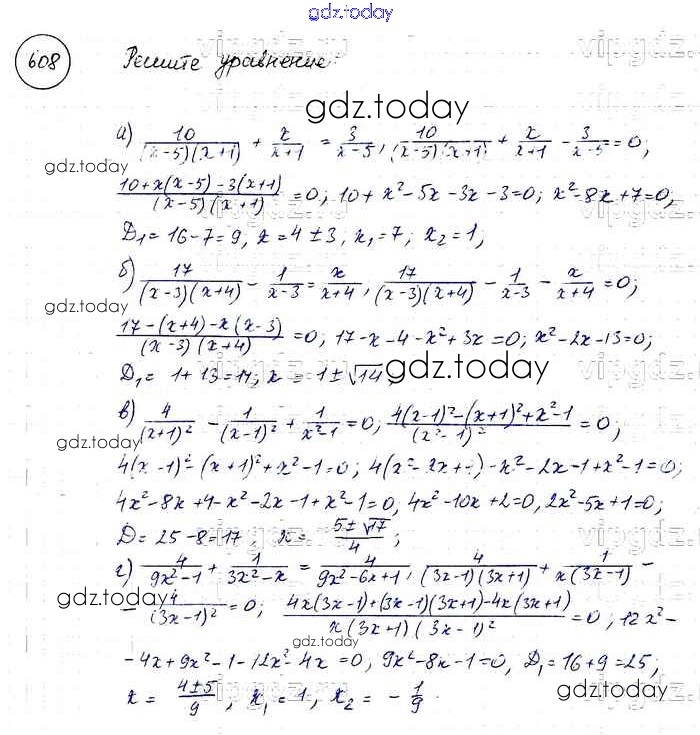 gdz.today
608 Решите уравнение:
gdz.today
а) 10/((x-5)(x+1)) + x/(x+1) = 3/(x-5), 10/((x-5)(x+1)) + x/(x+1) - 3/(x-5) = 0;
gdz.today
(10+x(x-5)-3(x+1))/((x-5)(x+1)) = 0; 10+x²-5x-3x-3=0; x²-8x+7=0;
D₁=16-7=9, x=4±3, x₁=7; x₂=1;
б) 17/((x-3)(x+4)) - 1/(x-3) = x/(x+4), 17/((x-3)(x+4)) - 1/(x-3) - x/(x+4) = 0;
gdz.today
(17-(x+4)-x(x-3))/((x-3)(x+4)) = 0; 17-x-4-x²+3x=0; x²-2x-13=0;
D₁=1+13=14, x=1±√14;
gdz.today
в) 4/(x+1)² - 1/(x-1)² + 1/(x²-1) = 0; (4(x-1)²-(x+1)²+x²-1)/(x²-1)² = 0;
gdz.today
4(x-1)²-(x+1)²+x²-1=0; 4(x²-2x+1)-x²-2x-1+x²-1=0;
4x²-8x+4-x²-2x-1+x²-1=0, 4x²-10x+2=0, 2x²-5x+1=0;
D=25-8=17, x=(5±√17)/4;
gdz.today
г) 4/(9x²-1) + 1/(3x²-x) = 4/(9x²-6x+1), 4/((3x-1)(3x+1)) + 1/(x(3x-1)) -
gdz.today
- 4/(3x-1)² = 0; (4x(3x-1)+(3x-1)(3x+1)-4x(3x+1))/(x(3x+1)(3x-1)²) = 0; 12x²-
gdz.today
-4x+9x²-1-12x²-4x=0, 9x²-8x-1=0, D₁=16+9=25;
x=(4±5)/9, x₁=1, x₂=-1/9.
gdz.today